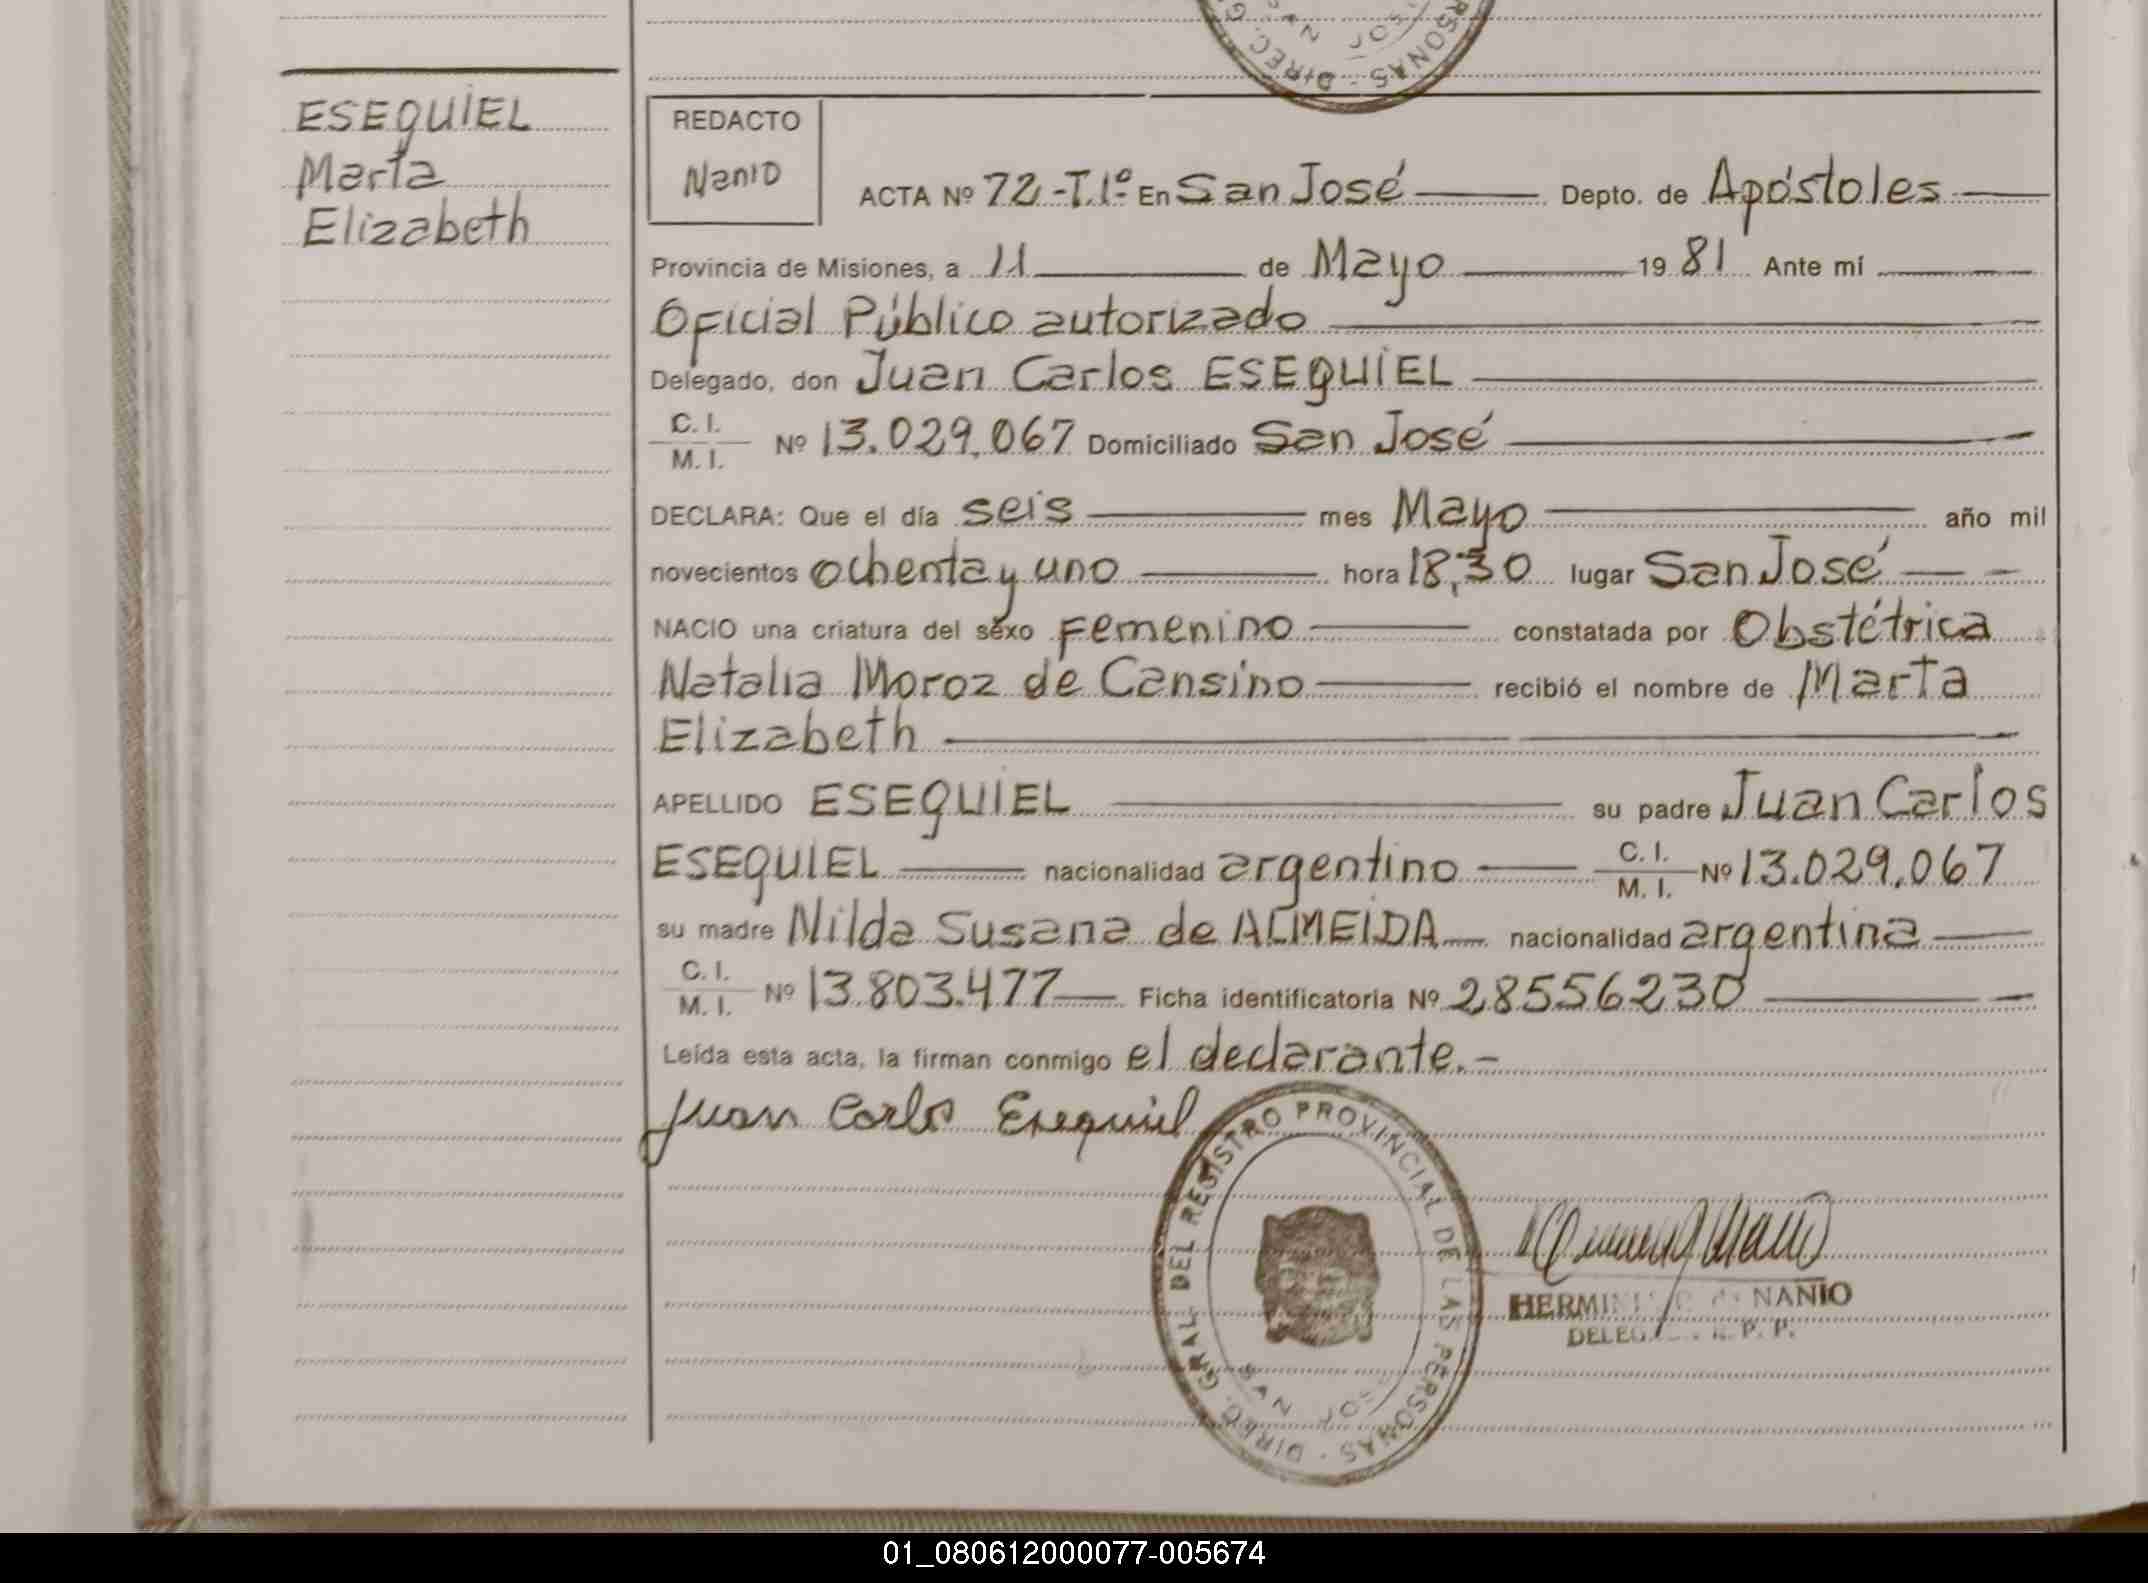 ESEQUIEL
Marta
Elizabeth
REDACTO
Nanio
ACTA Nº 72-T.1º En San José Depto. de Apóstoles
Provincia de Misiones, a 11 de Mayo 1981 Ante mí
Oficial Público autorizado
Delegado, don Juan Carlos ESEQUIEL
C. I.
M. I. Nº 13.029.067 Domiciliado San José
DECLARA: Que el día seis mes Mayo año mil
novecientos ochenta y uno hora 18,30 lugar San José
NACIO una criatura del sexo Femenino constatada por Obstétrica
Natalia Moroz de Cansino recibió el nombre de Marta
Elizabeth
APELLIDO ESEQUIEL su padre Juan Carlos
ESEQUIEL nacionalidad argentino C. I. M. I. Nº 13.029.067
su madre Nilda Susana de ALMEIDA nacionalidad argentina
C. I.
M. I. Nº 13.803.477 Ficha identificatoria Nº 28556230
Leída esta acta, la firman conmigo el declarante.-
Juan Carlos Esequiel
DIREC. GRAL. DEL REGISTRO PROVINCIAL DE LAS PERSONAS
SAN JOSE
NANIO
R. P. P.
01_080612000077-005674